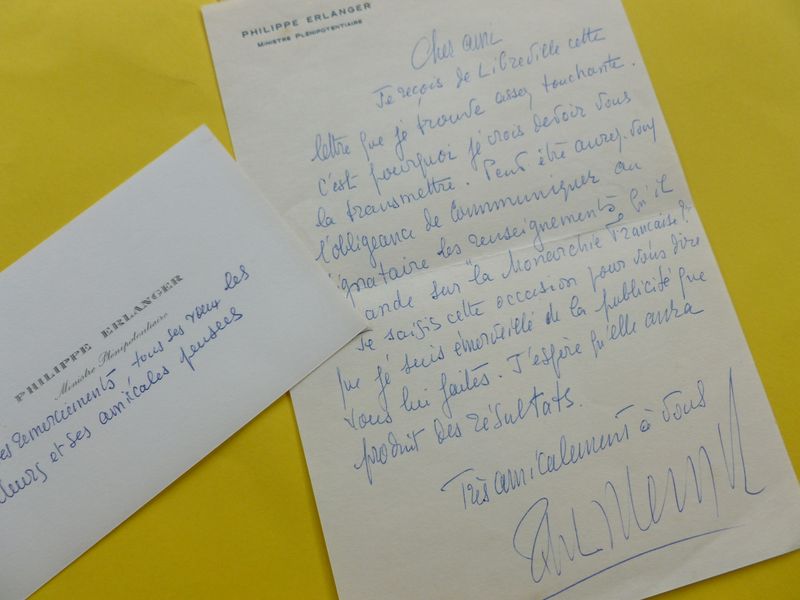 PHILIPPE ERLANGER
MINISTRE PLÉNIPOTENTIAIRE
Cher ami
Je reçois de Libreville cette
lettre que je trouve assez touchante.
c'est pourquoi je crois devoir vous
la transmettre. Peut être aurez-vous
l'obligeance de communiquer au
ignataire les renseignements qu'il
ande sur "la Monarchie Française".
Je saisis cette occasion pour vous dire
que je suis émerveillé de la publicité que
vous lui faites. J'espère qu'elle aura
produit des résultats.
Très amicalement à vous
PHILIPPE ERLANGER
Ministre Plénipotentiaire
es remerciements tous ses vœux les
lleurs et ses amicales pensées